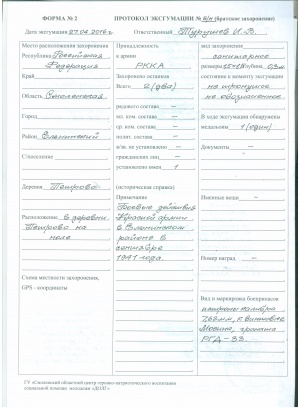 ФОРМА № 2 ПРОТОКОЛ ЭКСГУМАЦИИ № б/н (братское захоронение)
Дата эксгумации 27.04.2016 г. Ответственный Турушев И.В.
Место расположения захоронения
Республика Российская
Федерация
Край
Область Смоленская
Город
Район
Сельпоселение
Деревня Петрово
Расположение: в деревни
Петрово на
поле
Схема местности захоронения,
GPS - координаты
Принадлежность
к армии
РККА
Захоронено останков
Всего 2 (два)
рядового состава –
мл. ком. состава –
ср. ком. состава –
полит. состава –
в/зв. не установлено –
гражданских лиц –
установлено имен 1
(историческая справка)
Примечание
Боевые действия
Красной армии
в
районе в
сентябре
1941 года.
вид захоронения
санитарное
размеры глубин. 0,3м
состояние к моменту эксгумации
не
не обозначенное
В ходе эксгумации обнаружены
медальоны 1 (один)
Документы –
Именные вещи –
Номер наград –
Вид и маркировка боеприпасов
патроны калибра
7,62мм, к винтовке
Мосина, граната
РГД-33.
ГУ «Смоленский областной центр героико-патриотического воспитания
социальной помощи молодежи «ДОЛГ»